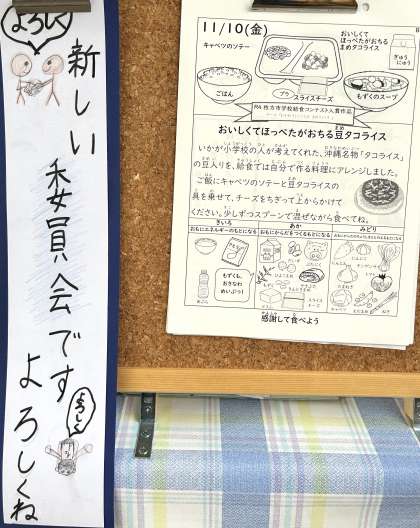 よろしく
新しい委員会です
よろしくね
よろしく
11/10(金)
おいしくて
ほっぺたがおちる
まめタコライス
キャベツのソテー
ぎゅう
にゅう
ごはん
プラ
スライスチーズ
もずくのスープ
おいしくてほっぺたがおちる豆タコライス
いかが小学校の人が考えてくれた、沖縄名物「タコライス」
の豆入りを、給食では自分で作る料理にアレンジしました。
ご飯にキャベツのソテーと豆タコライスの
具を乗せて、チーズをちぎって上からかけて
ください。少しずつスプーンで混ぜながら食べてね。
きいろ
あか
みどり
おもにエネルギーのもとになる
おもにからだをつくるもとになる
もずくも、
おきなわ
めいぶつ!
スライス
チーズ
にんじん
キャベツ
ねぎ
感謝して食べよう